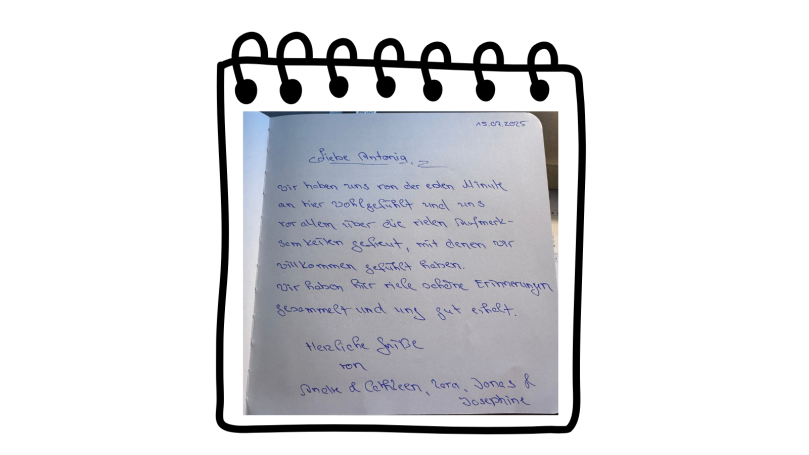 15.07.2025
Liebe Antonia,
wir haben uns von der ersten Minute
an hier wohlgefühlt und uns
vor allem über die vielen Aufmerk-
samkeiten gefreut, mit denen wir
willkommen gefühlt haben.
Wir haben hier viele schöne Erinnerungen
gesammelt und uns gut erholt.
Herzliche Grüße
von
Andre & Cathleen, Zara, Jonas &
Josephine